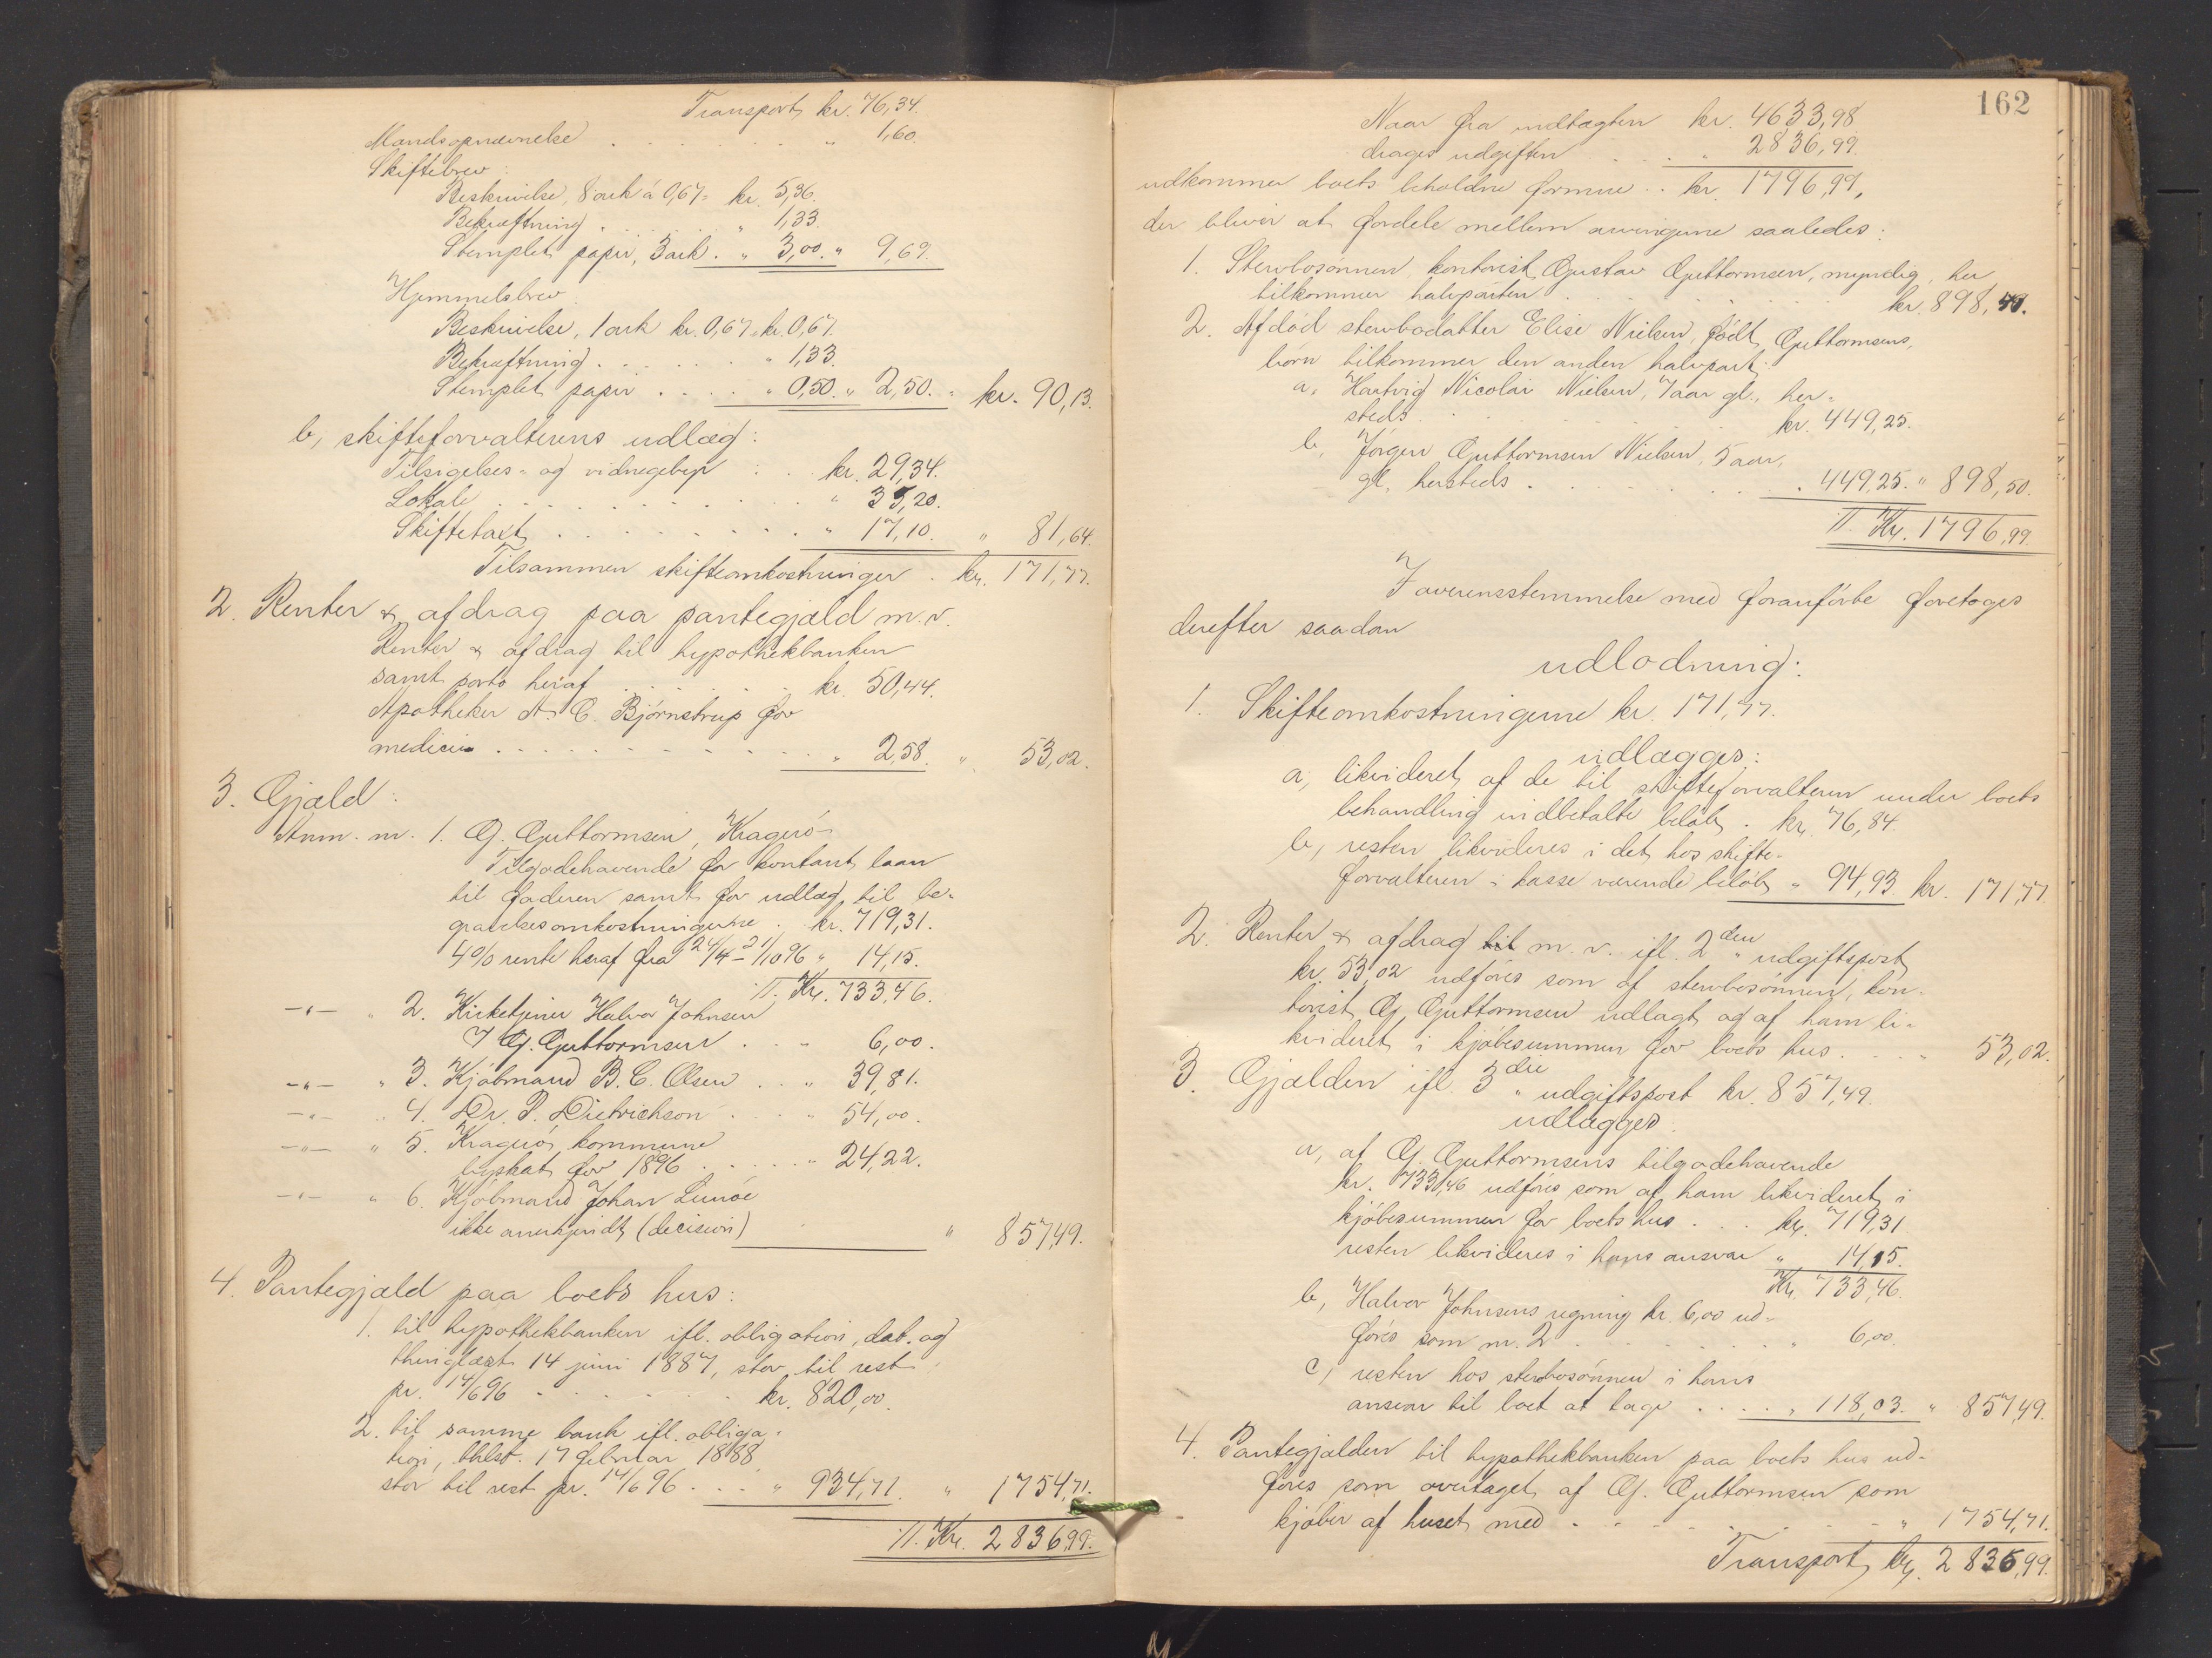 Transport kr. 76,34.
Mandsopnævnelse . . . . . . . „ 1,60.
Skiftebrev:
Beskrivelse, 8 ark á 0,67 = kr. 5,36.
Bekræftning . . . . . „ 1,33.
Stemplet papir, 3 ark . „ 3,00. „ 9,69.
Hjemmelsbrev.
Beskrivelse, 1 ark kr. 0,67 = kr. 0,67.
Bekræftning . . . . . . „ 1,33.
Stemplet papir . . . . „ 0,50. „ 2,50. = kr. 90,13.
b, skifteforvalterens udlæg:
Tilsigelses- og vidnegebyr . . . kr. 29,34.
Lokale . . . . . . . . . . „ 35,20.
Skiftetaxt . . . . . . . . . „ 17,10. „ 81,64.
Tilsammen skifteomkostninger . kr. 171,77.
2. Renter & afdrag paa pantegjæld m.v.
Renter & afdrag til hypothekbanken
samt porto heraf . . . . . . kr. 50,44.
Apotheker A. C. Bjørnstrup for
medicin . . . . . . . . . . . „ 2,58. „ 53,02.
3. Gjæld:
Anm. nr. 1. G. Guttormsen, Kragerø
Tilgodehavende for kontant laan
til faderen samt for udlæg til be-
gravelsesomkostningerne . kr. 719,31.
4 % rente heraf fra 24/4 – 21/10 96 „ 14,15.
T. Kr. 733,46.
–„– „ 2. Kirketjener Halvor Johnsen
G. Guttormsen . . „ 6,00.
–„– „ 3. Kjøbmand B. C. Olsen . . „ 39,81.
–„– „ 4. Dr. P. Dietrichson . . . „ 54,00.
–„– „ 5. Kragerø kommune
byskat for 1896 . . . . . „ 24,22.
–„– „ 6. Kjøbmand Johan
ikke anerkjendt (decision) „ 857,49.
4. Pantegjæld paa boets hus:
1. til hypothekbanken ifl. obligation, dat. og
thinglæst 14 juni 1887, stor til rest
pr. 14/6 96 . . . . . . . kr. 820,00.
2. til samme bank ifl. obliga-
tion, thlst. 17 februar 1888
stor til rest pr. 14/6 96 . . . „ 934,71. „ 1754,71.
T. Kr. 2836,99.
162
Naar fra indtægten kr. 4633,98
drages udgiften . . . „ 2836,99.
udkommer boets beholdne formue . . kr. 1796,99,
der bliver at fordele mellem arvingerne saaledes:
1. Stervbosønnen, kontorist Gustav Guttormsen, myndig, her
tilkommer halvparten . . . . . . . . . kr. 898,49.
2. Afdød stervbodatter Elise Nielsen, født Guttormsens,
børn tilkommer den anden halvpart:
a, Hartvig Nicolai Nielsen, 7 aar gl., her-
steds . . . . . . . . kr. 449,25.
b, Jørgen Guttormsen Nielsen, 5 aar,
gl. hersteds . . . . . . . . 449,25. „ 898,50.
T. Kr. 1796,99.
I overensstemmelse med foranførte foretoges
derefter saadan
udlodning:
1. Skifteomkostningerne kr. 171,77.
udlægges:
a, likvideret af de til skifteforvalteren under boets
behandling indbetalte beløb . kr. 76,84.
b, resten likvideres i det hos skifte-
forvalteren i kasse værende beløb „ 94,93 kr. 171,77.
2. Renter & afdrag til m. v. ifl. 2den udgiftspost
kr. 53,02 udføres som af stervbosønnen, kon-
torist G. Guttormsen udlagt og af ham li-
kvideret i kjøbesummen for boets hus . . . „ 53,02.
3. Gjælden ifl. 3die udgiftspost kr. 857,49.
udlægges.
a, af G. Guttormsens tilgodehavende
kr. 733,46 udføres som af ham likvideret i
kjøbesummen for boets hus . . . kr. 719,31
resten likvideres i hans ansvar „ 14,15.
Kr. 733,46.
b, Halvor Johnsens regning kr. 6,00 ud-
føres som nr. 2 . . . . . . . „ 6,00.
c, resten hos stervbosønnen i hans
ansvar til boet at tage . . . . „ 118,03. „ 857,49.
4. Pantegjælden til hypothekbanken paa boets hus ud-
føres som overtaget af G. Guttormsen som
kjøber af huset med . . . . . . . . . „ 1754,71.
Transport kr. 2836,99.